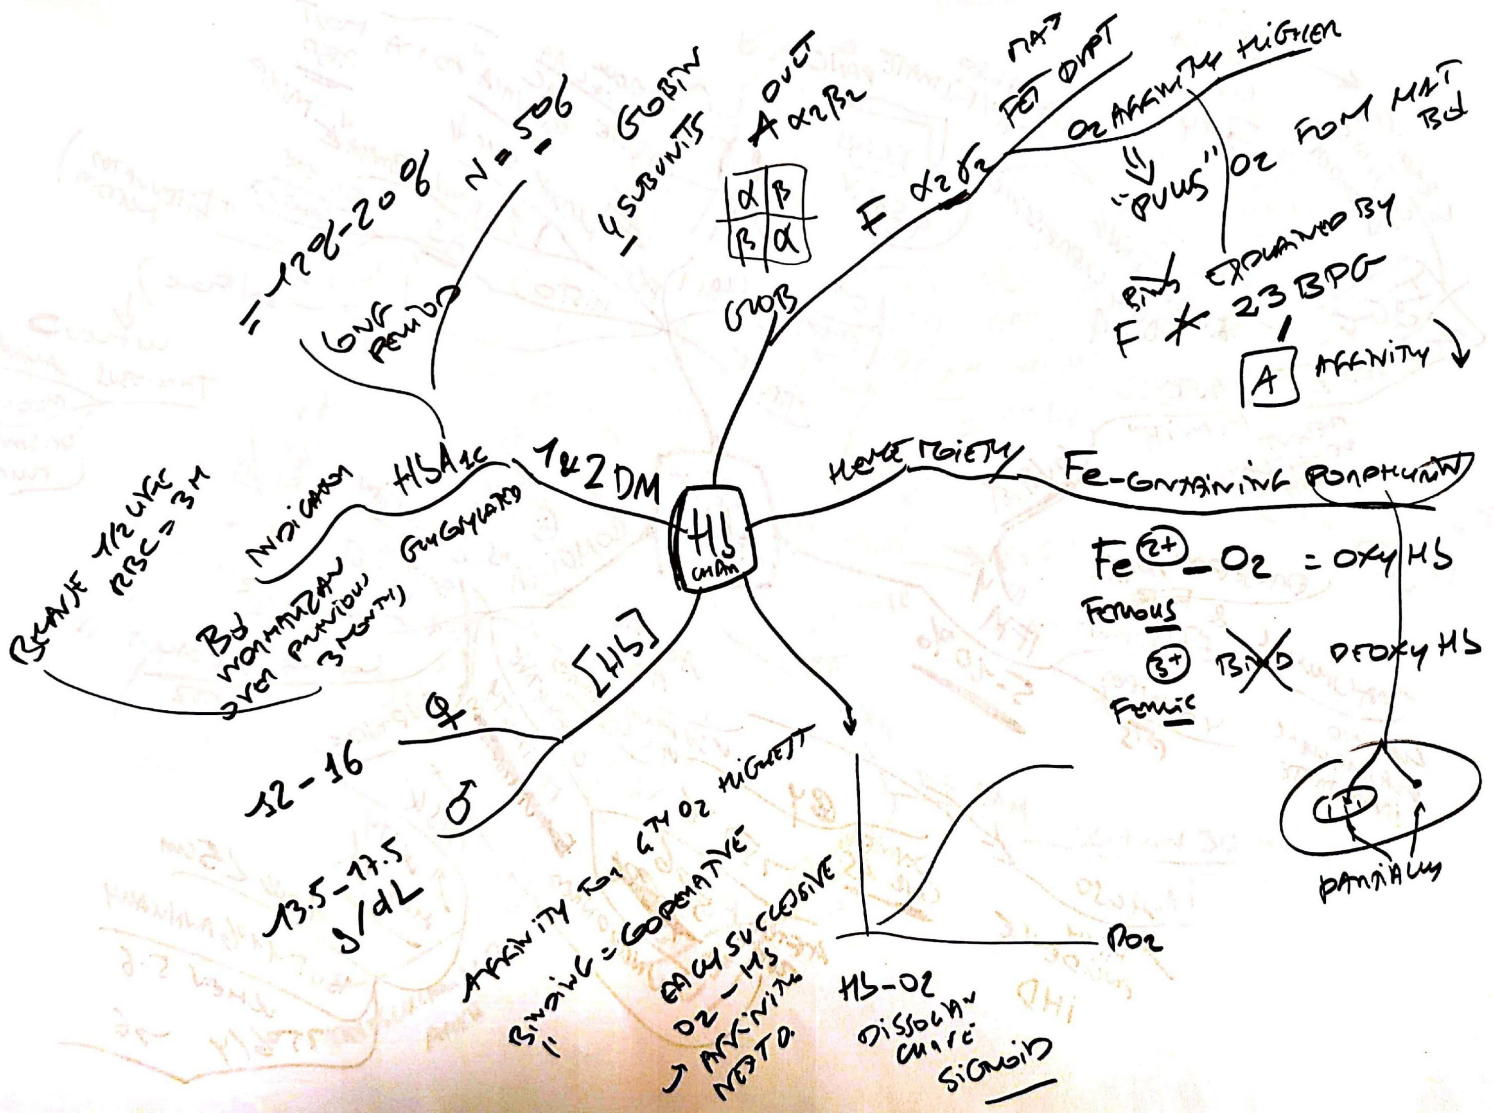 Hb
CHAR
GLOB
4 SUBUNITS
GLOBIN
ADULT
A α2β2
α β
β α
F α2γ2
MAJ
FET DVPT
O2 AFFINITY HIGHER
"PULLS" O2 FROM MAT
Bd
EXPLAINED BY
BINDS
F 23 BPG
A AFFINITY
HEME MOIETY
Fe-CONTAINING PORPHYRIN
Fe 2+ - O2 = OXY Hb
FERROUS
3+ BIND DEOXY Hb
FERRIC
PARTIALLY
PO2
Hb-O2
DISSOCIAN
CURVE
SIGMOID
AFFINITY FOR 4TH O2 HIGHEST
BINDING = COOPERATIVE
EACH SUCCESSIVE
O2 - Hb
AFFINITY
NEXT O.
[Hb]
♀
12-16
♂
13.5-17.5
g/dL
1 & 2 DM
HbA1C
GLYCOSYLATED
N = 5%
LONG
PERIOD
= 12%-20%
INDICATION
Bd
NORMALIZAN
OVER PREVIOUS
3 MONTHS
BECAUSE 1/2 LIFE
RBC = 3M